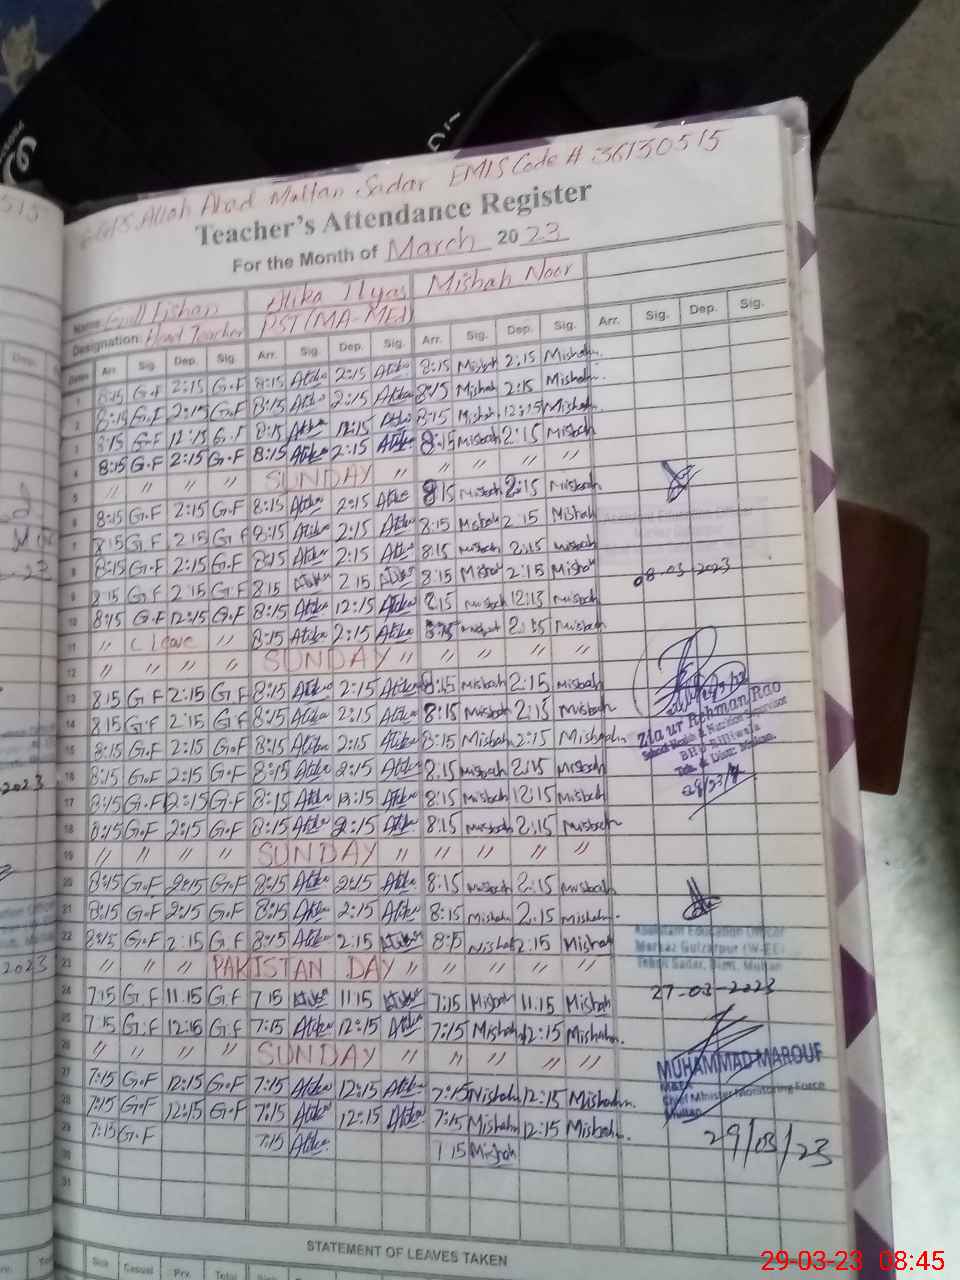 Allah Abad Multan Sadar EMIS Code # 36130515
Teacher's Attendance Register
For the Month of March 2023
Name: Gull Fishan Atika Ilyas Misbah Noor
Designation: Head Teacher PST (MA-MEd)
Dates Arr. Sig. Dep. Sig. Arr. Sig. Dep. Sig. Arr. Sig. Dep. Sig. Arr. Sig. Dep. Sig.
1 8:15 G.F 2:15 G.F 8:15 Atika 2:15 Atika 8:15 Misbah 2:15 Misbah
2 8:15 G.F 2:15 G.F 8:15 Atika 2:15 Atika 8:15 Misbah 2:15 Misbah
3 8:15 G.F 12:15 G.F 8:15 Atika 12:15 Atika 8:15 Misbah 12:15 Misbah
4 8:15 G.F 2:15 G.F 8:15 Atika 2:15 Atika 8:15 Misbah 2:15 Misbah
5 " " " " SUNDAY " " " " "
6 8:15 G.F 2:15 G.F 8:15 Atika 2:15 Atika 8:15 Misbah 2:15 Misbah
7 8:15 G.F 2:15 G.F 8:15 Atika 2:15 Atika 8:15 Misbah 2:15 Misbah
8 8:15 G.F 2:15 G.F 8:15 Atika 2:15 Atika 8:15 Misbah 2:15 Misbah
9 8:15 G.F 2:15 G.F 8:15 Atika 2:15 Atika 8:15 Misbah 2:15 Misbah 08-03-2023
10 8:15 G.F 12:15 G.F 8:15 Atika 12:15 Atika 8:15 Misbah 12:15 Misbah
11 " C leave " 8:15 Atika 2:15 Atika 8:15 Misbah 2:15 Misbah
12 " " " " SUNDAY " " " " "
13 8:15 G.F 2:15 G.F 8:15 Atika 2:15 Atika 8:15 Misbah 2:15 Misbah
14 8:15 G.F 2:15 G.F 8:15 Atika 2:15 Atika 8:15 Misbah 2:15 Misbah
15 8:15 G.F 2:15 G.F 8:15 Atika 2:15 Atika 8:15 Misbah 2:15 Misbah
Zia ur Rehman Rao
School Health & Nutrition Supervisor
BHU
Teh. & Distt. Multan.
16 8:15 G.F 2:15 G.F 8:15 Atika 2:15 Atika 8:15 Misbah 2:15 Misbah
17 8:15 G.F 12:15 G.F 8:15 Atika 12:15 Atika 8:15 Misbah 12:15 Misbah
18 8:15 G.F 2:15 G.F 8:15 Atika 2:15 Atika 8:15 Misbah 2:15 Misbah
19 " " " " SUNDAY " " " " "
20 8:15 G.F 2:15 G.F 8:15 Atika 2:15 Atika 8:15 Misbah 2:15 Misbah
21 8:15 G.F 2:15 G.F 8:15 Atika 2:15 Atika 8:15 Misbah 2:15 Misbah
22 8:15 G.F 2:15 G.F 8:15 Atika 2:15 Atika 8:15 Misbah 2:15 Misbah
Assistant Education Officer
Markaz Gulzarpur (W-EE)
Tehsil Sadar, Distt. Multan
23 " " " " PAKISTAN DAY " " " " "
24 7:15 G.F 11:15 G.F 7:15 Atika 11:15 Atika 7:15 Misbah 11:15 Misbah 27-03-2023
25 7:15 G.F 12:15 G.F 7:15 Atika 12:15 Atika 7:15 Misbah 12:15 Misbah
26 " " " " SUNDAY " " " " "
MUHAMMAD MAROUF
Chief Minister Monitoring Force
Multan
27 7:15 G.F 12:15 G.F 7:15 Atika 12:15 Atika 7:15 Misbah 12:15 Misbah
28 7:15 G.F 12:15 G.F 7:15 Atika 12:15 Atika 7:15 Misbah 12:15 Misbah
29 7:15 G.F 7:15 Atika 7:15 Misbah 29/03/23
30
31
STATEMENT OF LEAVES TAKEN
Sick Casual Prv. Total
29-03-23 08:45